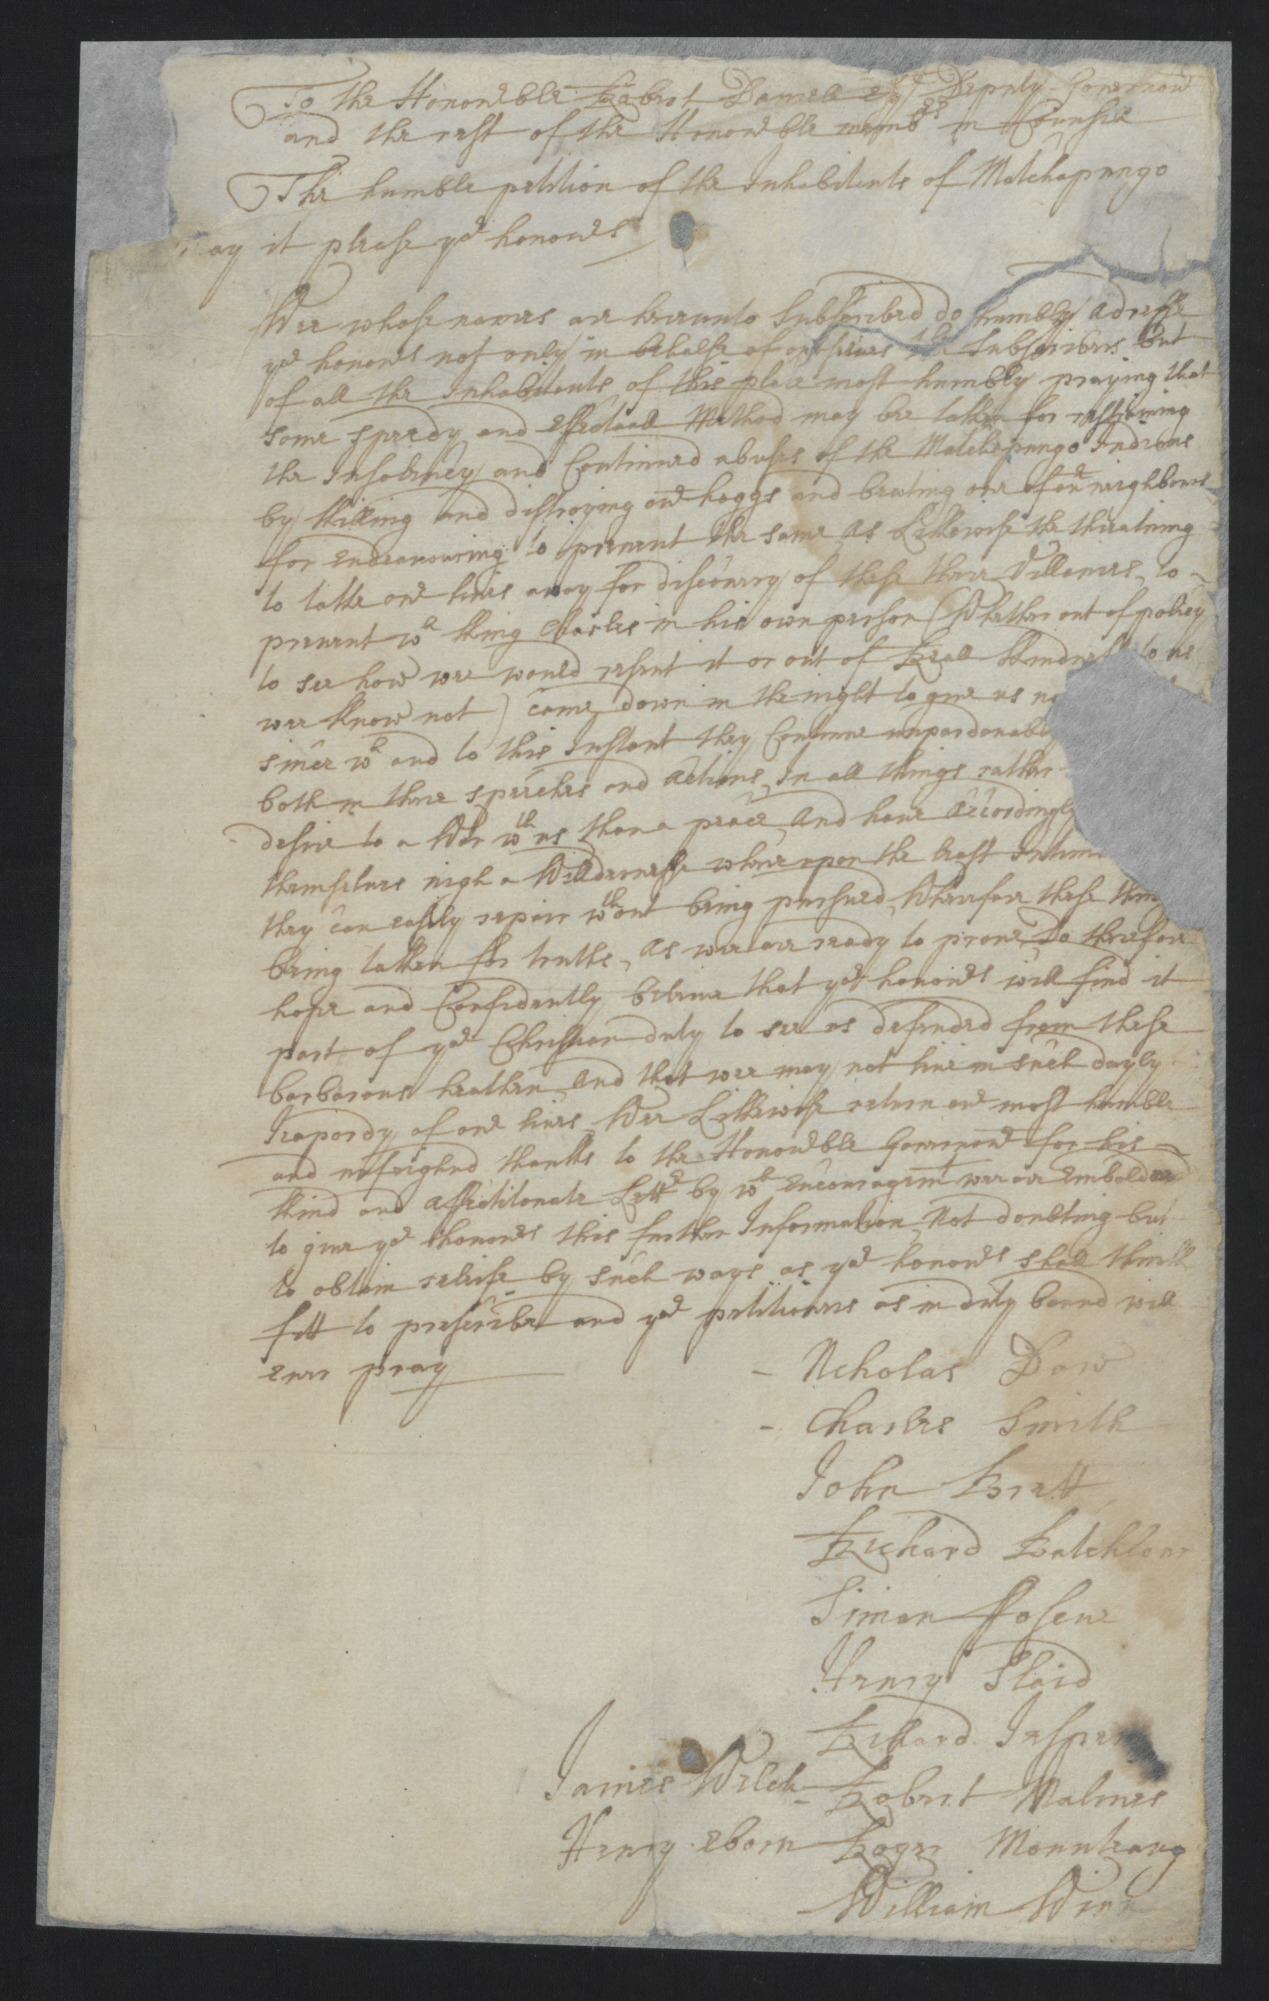 To the Honorable Robert Daniell Esqr Deputy Governour
and the rest of the Honorable membrs in Counsil
The humble petition of the Inhabitants of Matchapungo
ay it please yor honours
Wee whose names are hereunto Subscribed do humbly adresse
yor honours not only in behalfe of orselves the Subscribers but
of all the Inhabitants of this place most humbly praying that
some speedy and effectuall Method may bee taken for restraining
the Insolency and Continued abuses of the Matchapungo Indians
by killing and distroying our hoggs and beating one of our neighbours
for endeavouring to prevent the same as Likewise the threatning
to take our lives away for discovery of these there Villanies, to
prevent wch King Charles in his own person (Whether out of policy
to see how wee would resent it or out of Reall Kindness to us
wee know not) came down in the night to give us no
since wch and to this Instant they Continue unpardonab
both in there speeches and actions, In all things rather
desire to a War wth us than a peace, and have accordingly
themselves nigh a Willdernesse where upon the least
they can easily repair wthout being pursued, Wherefore these thin
being taken for truths, as wee are ready to prove, Do therefore
hope and Confidently beleive that yor honours will find it
part of yor Christian duty to see us defended from these
barbarous heathen and that wee may not live in such dayly
Jeapordy of our lives, Wee Likewise return our most humble
and unfeighned thanks to the Honorable Governour for his
kind and affectitonate Lettr by wch encouragemt wee are Emboldned
to give yor honours this further Information Not doubting but
to obtain releife by such ways as yor honours shall think
fitt to prescribe and yor petitioners as in duty bound will
ever pray
Ncholas Daw
Charles Smith
John Brett
Richard Batchloar
Simon
Henry Slaid
Richard Jasper
James Welch Robert
Henry Eborn Roger Mounteang
William Win